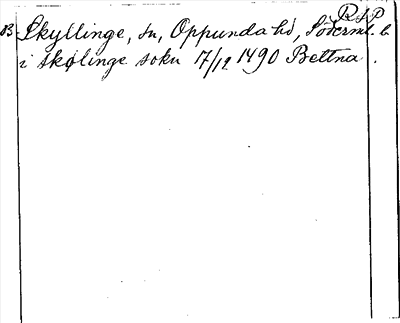 RSP
83 Skyllinge, sn, Oppunda hd, Söderml. l.
i skølinge sokn 7/12 1490 Bettna.